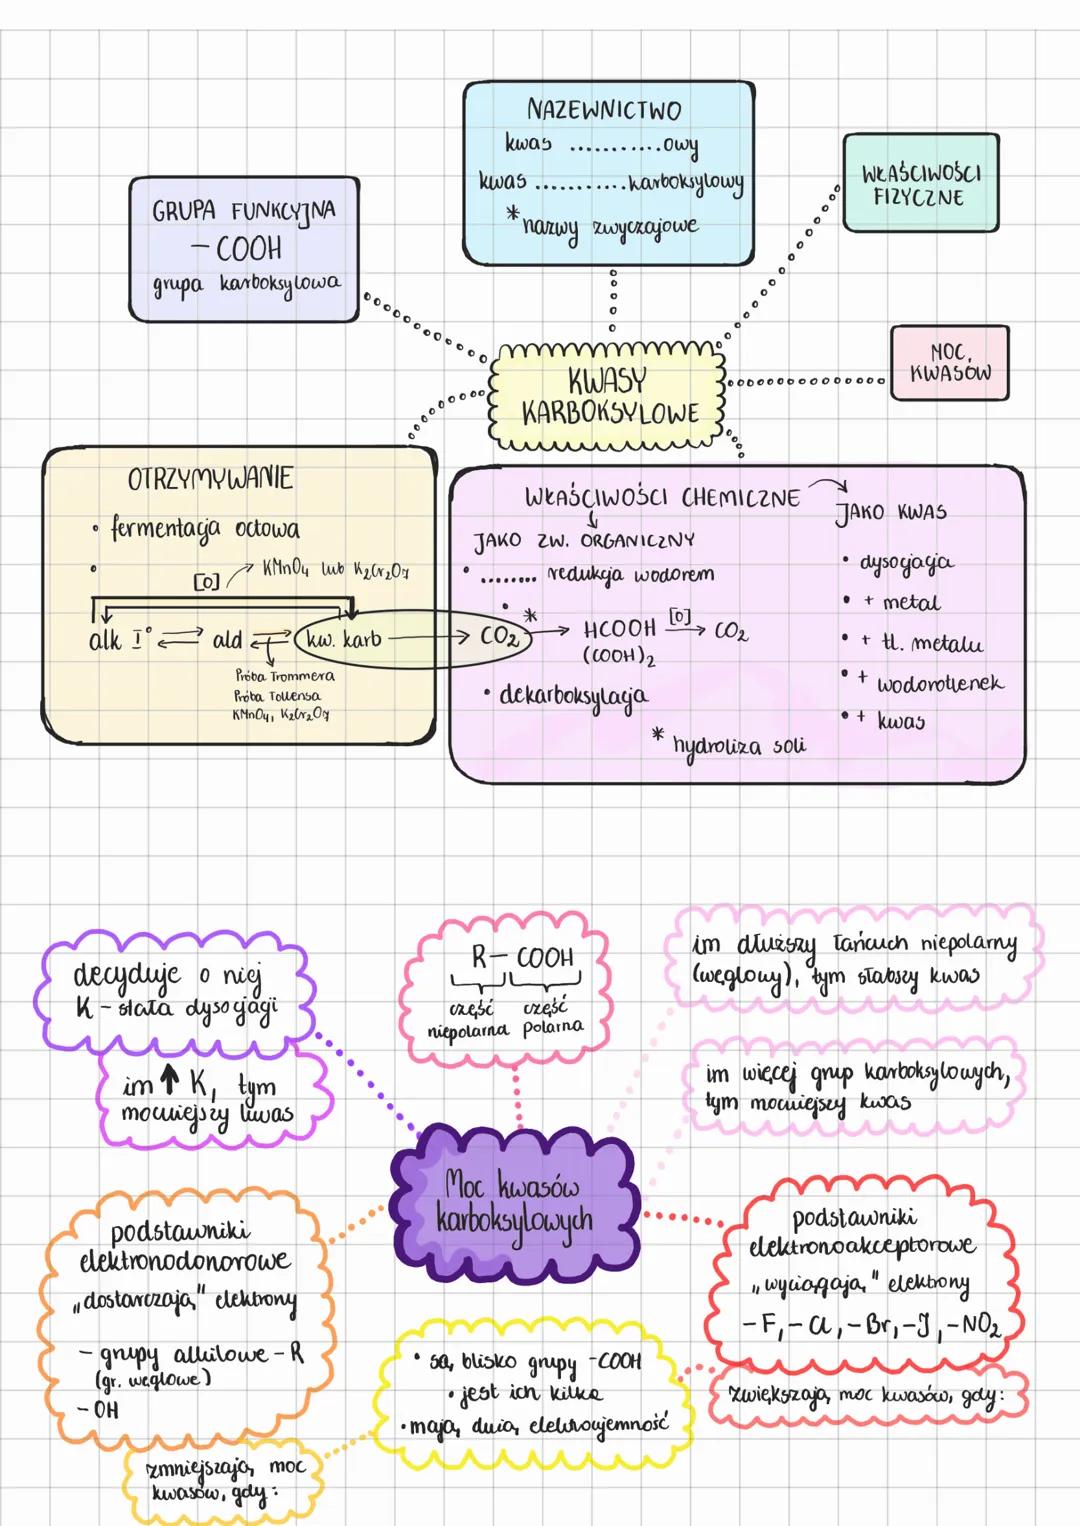 NAZEWNICTWO
kwas ...........owy
kwas ...........karboksylowy
* nazwy zwyczajowe
WŁAŚCIWOŚCI
FIZYCZNE
GRUPA FUNKCYJNA
- COOH
grupa karboksylowa
MOC
KWASÓW
KWASY
KARBOKSYLOWE
OTRZYMYWANIE
• fermentacja octowa
•
[O] → KMnO4 lub K2Cr2O7
alk I° ⇌ ald ⇌ kw. karb → CO2
Próba Trommera
Próba Tollensa
KMnO4, K2Cr2O7
WŁAŚCIWOŚCI CHEMICZNE
JAKO ZW. ORGANICZNY
• ........ redukcja wodorem
• * → HCOOH [O] → CO2
(COOH)2
• dekarboksylacja
* hydroliza soli
JAKO KWAS
• dysocjacja
• + metal
• + tl. metalu
• + wodorotlenek
• + kwas
decyduje o niej
K - stała dysocjacji
im ↑ K, tym
mocniejszy kwas
R- COOH
część część
niepolarna polarna
im dłuższy łańcuch niepolarny
(węglowy), tym słabszy kwas
im więcej grup karboksylowych,
tym mocniejszy kwas
Moc kwasów
karboksylowych
podstawniki
elektronodonorowe
„dostarczają" elektrony
- grupy alkilowe - R
(gr. węglowe)
- OH
zmniejszają moc
kwasów, gdy:
• są blisko grupy -COOH
• jest ich kilka
• mają dużą elektroujemność
podstawniki
elektronoakceptorowe
„wyciągają" elektrony
- F, - Cl, - Br, - J, - NO2
zwiększają moc kwasów, gdy: